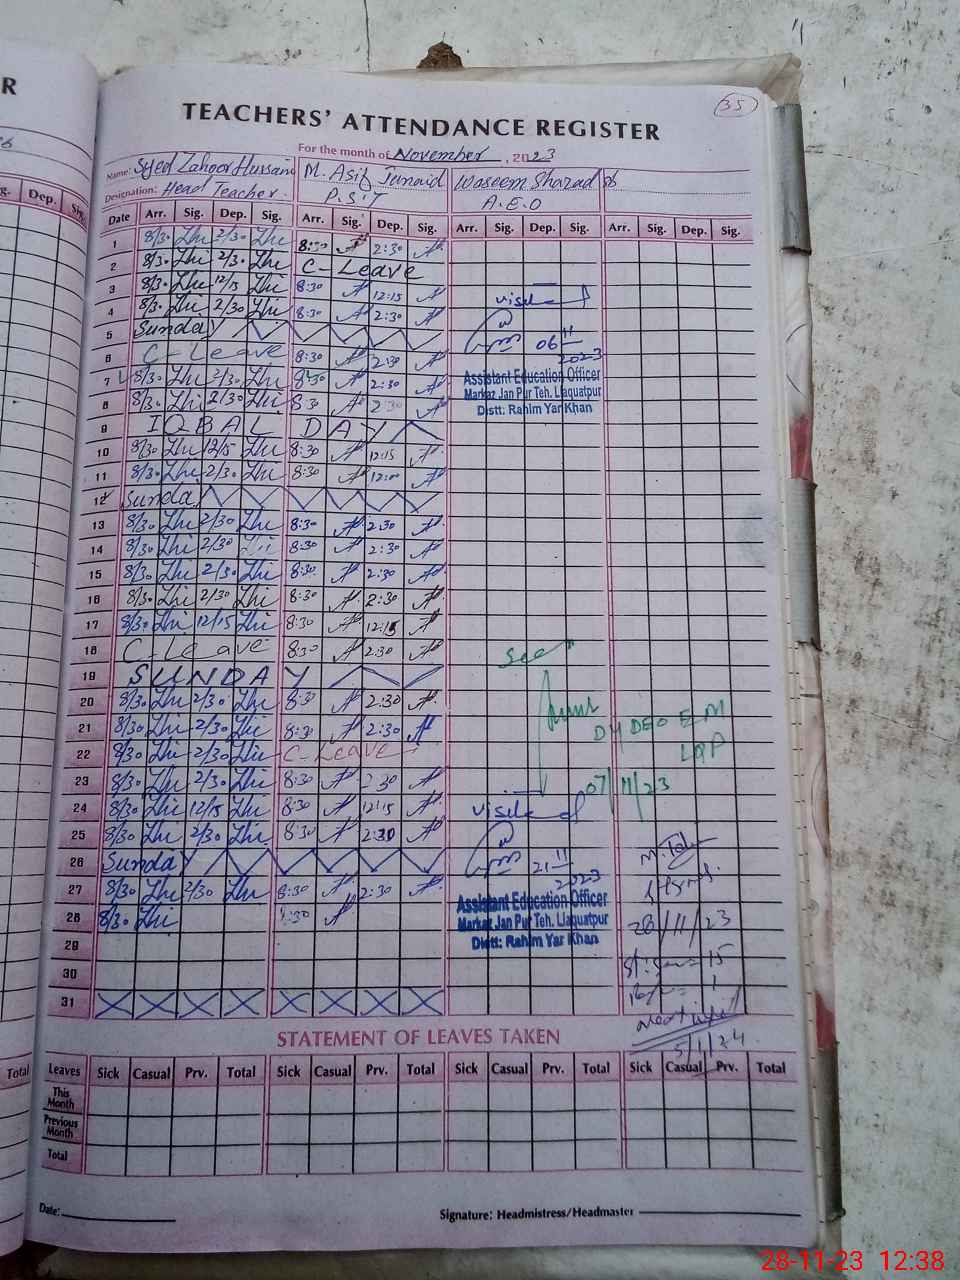 R
35
TEACHERS' ATTENDANCE REGISTER
For the month of November, 2023
Name: Syed Zahoor Hussain M. Asif Junaid Waseem Shazad
Designation: Head Teacher. P.S.T A.E.O
g. Dep. Sig.
Date Arr. Sig. Dep. Sig. Arr. Sig. Dep. Sig. Arr. Sig. Dep. Sig. Arr. Sig. Dep. Sig.
1 8/30 2/30 8:30 2:30
2 8/30 2/30 C-Leave
3 8/30 12/15 8:30 12:15
4 8/30 2/30 8:30 2:30
5 Sunday
6 C-Leave 8:30 2:30
7 8/30 2/30 8:30 2:30
8 8/30 2/30 8:30 2:30
9 IQBAL DAY
10 8/30 12/15 8:30 12:15
11 8/30 2/30 8:30 12:00
12 Sunday
13 8/30 2/30 8:30 2:30
14 8/30 2/30 8:30 2:30
15 8/30 2/30 8:30 2:30
16 8/30 2/30 8:30 2:30
17 8/30 12/15 8:30 12:15
18 C-Leave 8:30 2:30
19 SUNDAY
20 8/30 2/30 8:30 2:30
21 8/30 2/30 8:30 2:30
22 8/30 2/30 C-Leave
23 8/30 2/30 8:30 2:30
24 8/30 12/15 8:30 12:15
25 8/30 2/30 8:30 2:30
26 Sunday
27 8/30 2/30 8:30 2:30
28 8/30 8:30
29
30
31
visited
06 11
2023
Assistant Education Officer
Markaz Jan Pur Teh. Liaquatpur
Distt: Rahim Yar Khan
Seen
Dy DEO E M
LQP
07/11/23
visited
21 11
2023
Assistant Education Officer
Markaz Jan Pur Teh. Liaquatpur
Distt: Rahim Yar Khan
28/11/23
15
1
Next visit
5/1/24
STATEMENT OF LEAVES TAKEN
Total Leaves Sick Casual Prv. Total Sick Casual Prv. Total Sick Casual Prv. Total Sick Casual Prv. Total
This Month
Previous Month
Total
Date:
Signature: Headmistress/Headmaster
28-11-23 12:38